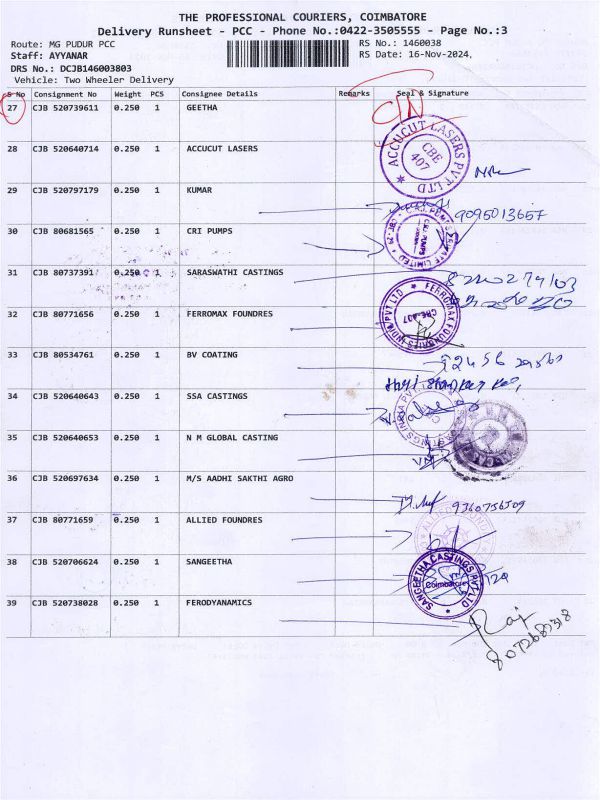 THE PROFESSIONAL COURIERS, COIMBATORE
Delivery Runsheet - PCC - Phone No.:0422-3505555 - Page No.:3
Route: MG PUDUR PCC RS No.: 1460038
Staff: AYYANAR RS Date: 16-Nov-2024,
DRS No.: DCJB146003803
Vehicle: Two Wheeler Delivery
S No Consignment No Weight PCS Consignee Details Remarks Seal & Signature
27 CJB 520739611 0.250 1 GEETHA
28 CJB 520640714 0.250 1 ACCUCUT LASERS
ACCUCUT LASERS PVT LTD
CBE
407
29 CJB 520797179 0.250 1 KUMAR
9095013657
30 CJB 80681565 0.250 1 CRI PUMPS
31 CJB 80737391 0.250 1 SARASWATHI CASTINGS
32 CJB 80771656 0.250 1 FERROMAX FOUNDRES
FERROMAX FOUNDRIES INDIA PVT LTD
CBE.407
33 CJB 80534761 0.250 1 BV COATING
34 CJB 520640643 0.250 1 SSA CASTINGS
35 CJB 520640653 0.250 1 N M GLOBAL CASTING
36 CJB 520697634 0.250 1 M/S AADHI SAKTHI AGRO
37 CJB 80771659 0.250 1 ALLIED FOUNDRES
38 CJB 520706624 0.250 1 SANGEETHA
SANGEETHA CASTINGS PVT LTD
Coimbatore
39 CJB 520738028 0.250 1 FERODYNAMICS
Raj